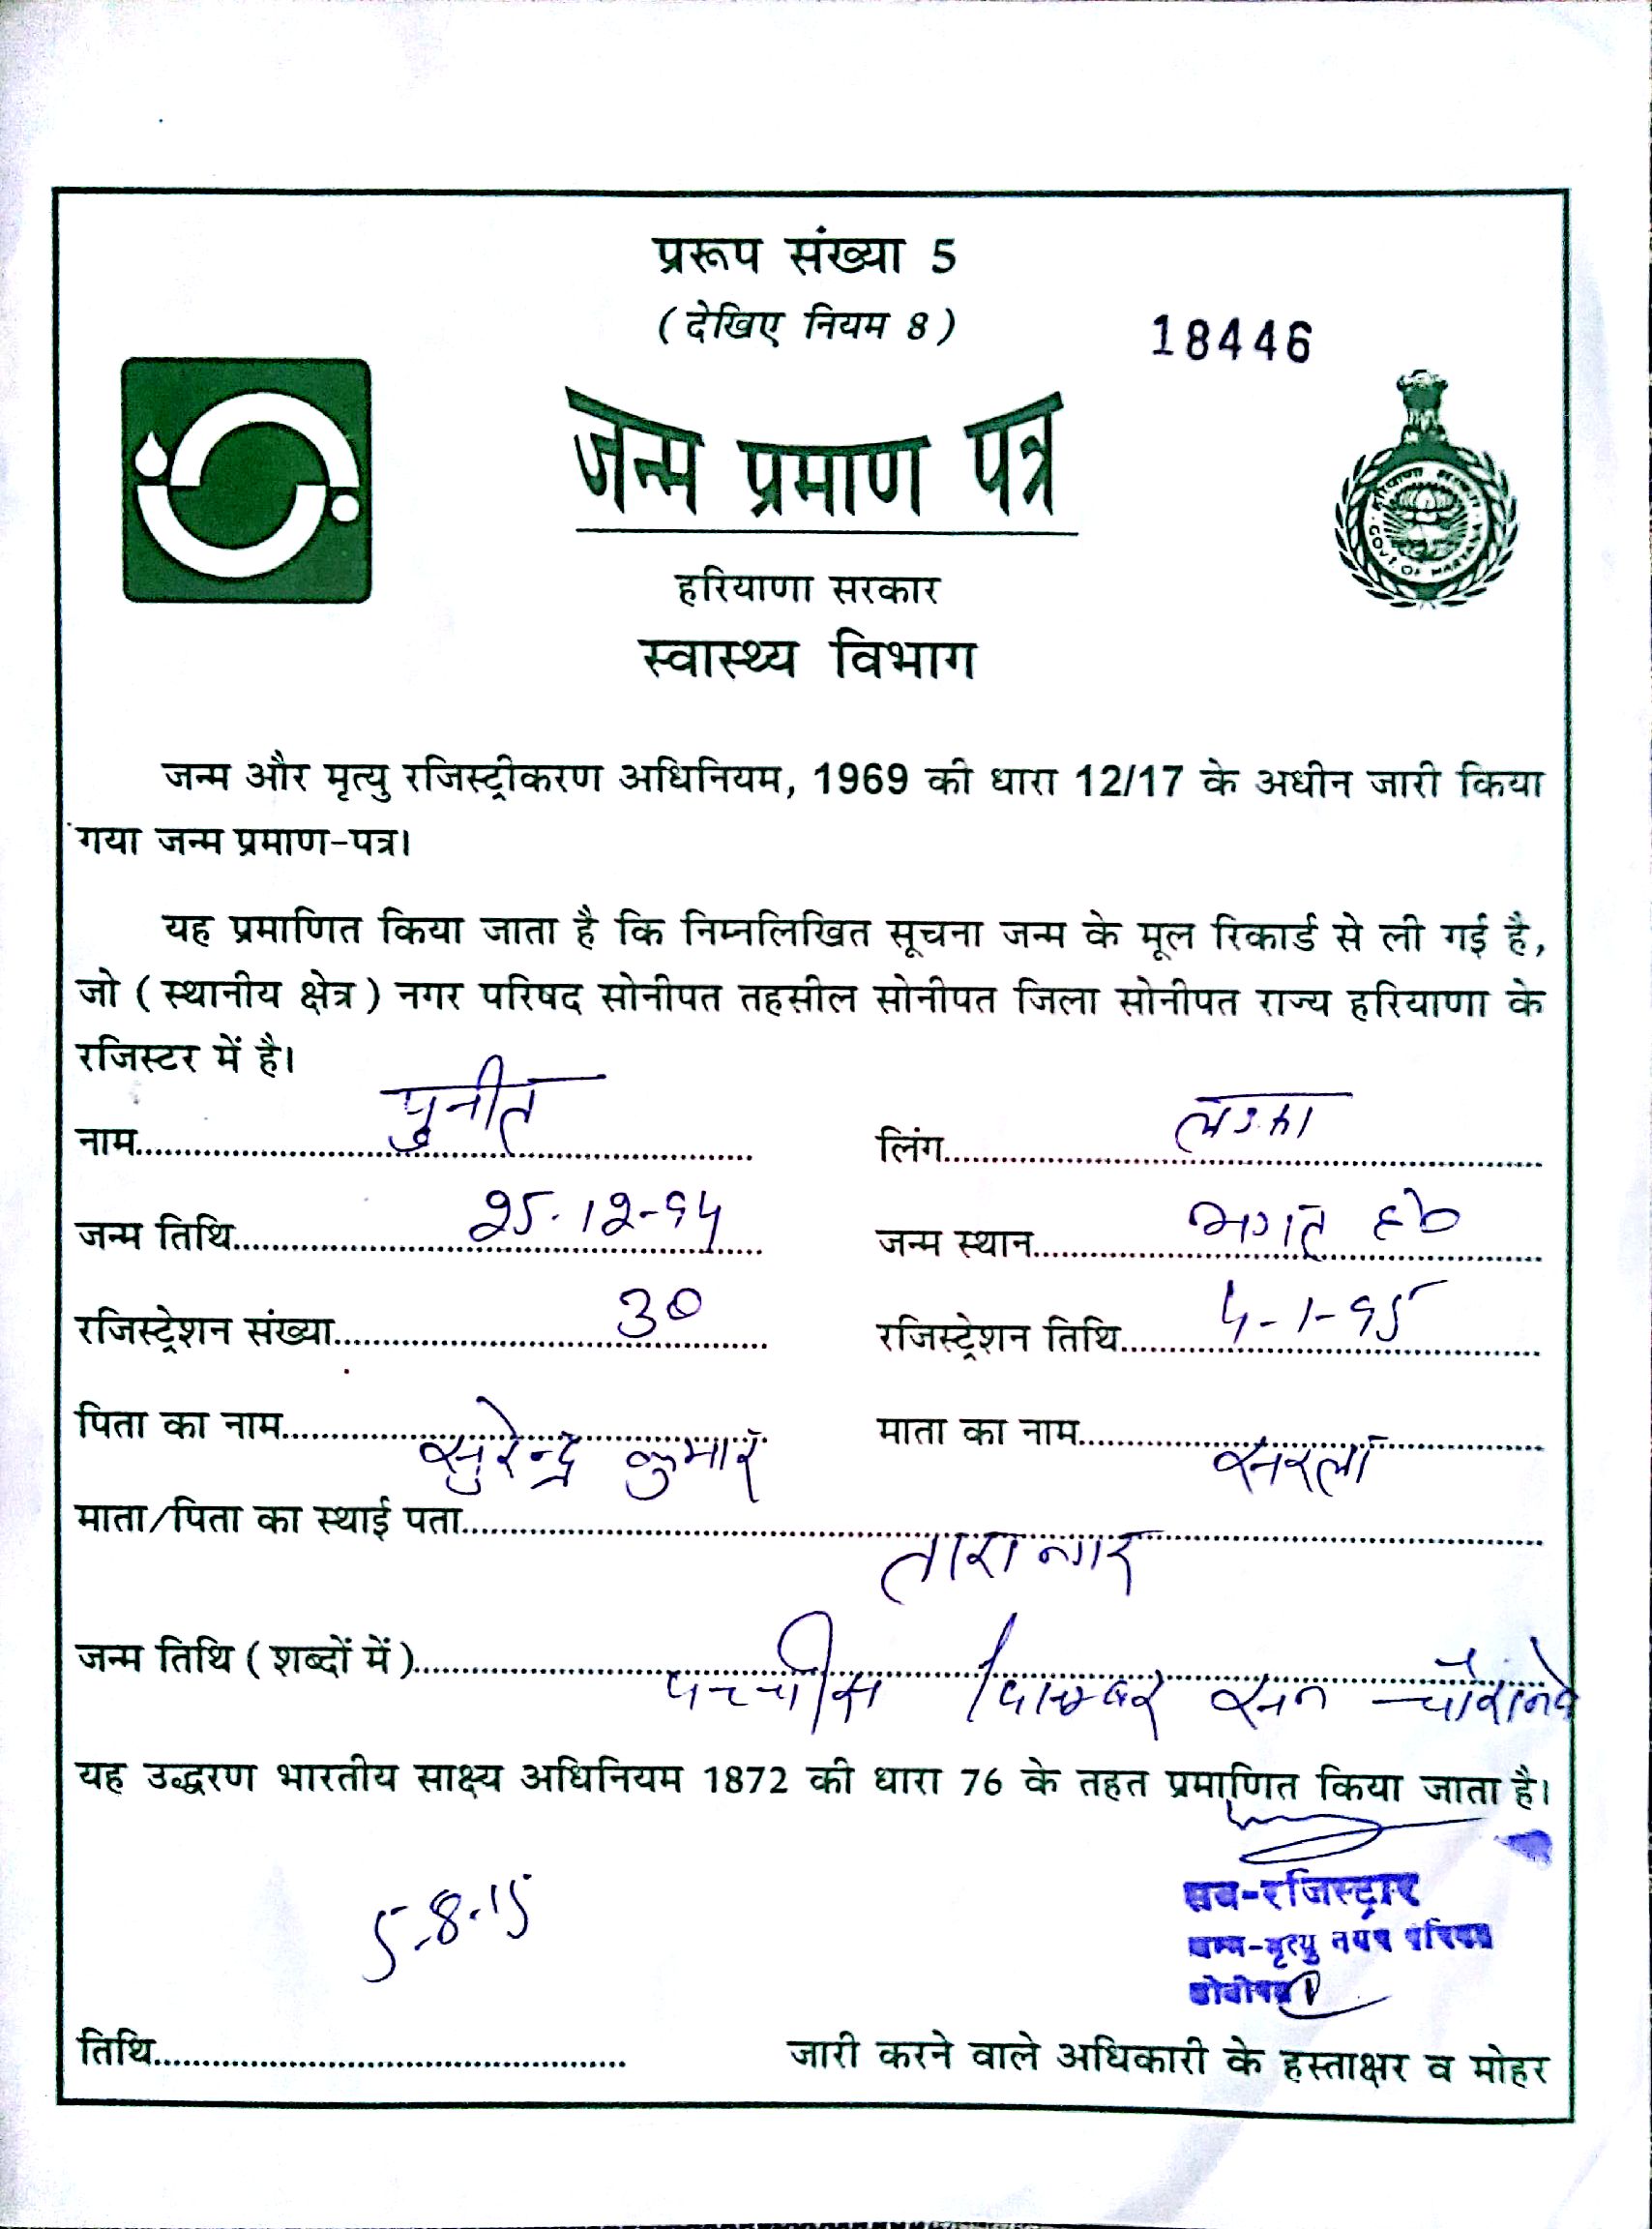 प्ररूप संख्या 5
(देखिए नियम 8)
18446
जन्म प्रमाण पत्र
हरियाणा सरकार
स्वास्थ्य विभाग
जन्म और मृत्यु रजिस्ट्रीकरण अधिनियम, 1969 की धारा 12/17 के अधीन जारी किया
गया जन्म प्रमाण-पत्र।
यह प्रमाणित किया जाता है कि निम्नलिखित सूचना जन्म के मूल रिकार्ड से ली गई है,
जो (स्थानीय क्षेत्र) नगर परिषद सोनीपत तहसील सोनीपत जिला सोनीपत राज्य हरियाणा के
रजिस्टर में है।
नाम पुनीत लिंग लड़का
जन्म तिथि 25-12-94 जन्म स्थान भगत
रजिस्ट्रेशन संख्या 30 रजिस्ट्रेशन तिथि 4-1-95
पिता का नाम सुरेन्द्र कुमार माता का नाम सरला
माता/पिता का स्थाई पता तारा नगर
जन्म तिथि (शब्दों में) पच्चीस दिसम्बर सन चौरानवे
यह उद्धरण भारतीय साक्ष्य अधिनियम 1872 की धारा 76 के तहत प्रमाणित किया जाता है।
5-8-15
सब-रजिस्ट्रार
जन्म-मृत्यु नगर परिषद
सोनीपत
तिथि जारी करने वाले अधिकारी के हस्ताक्षर व मोहर